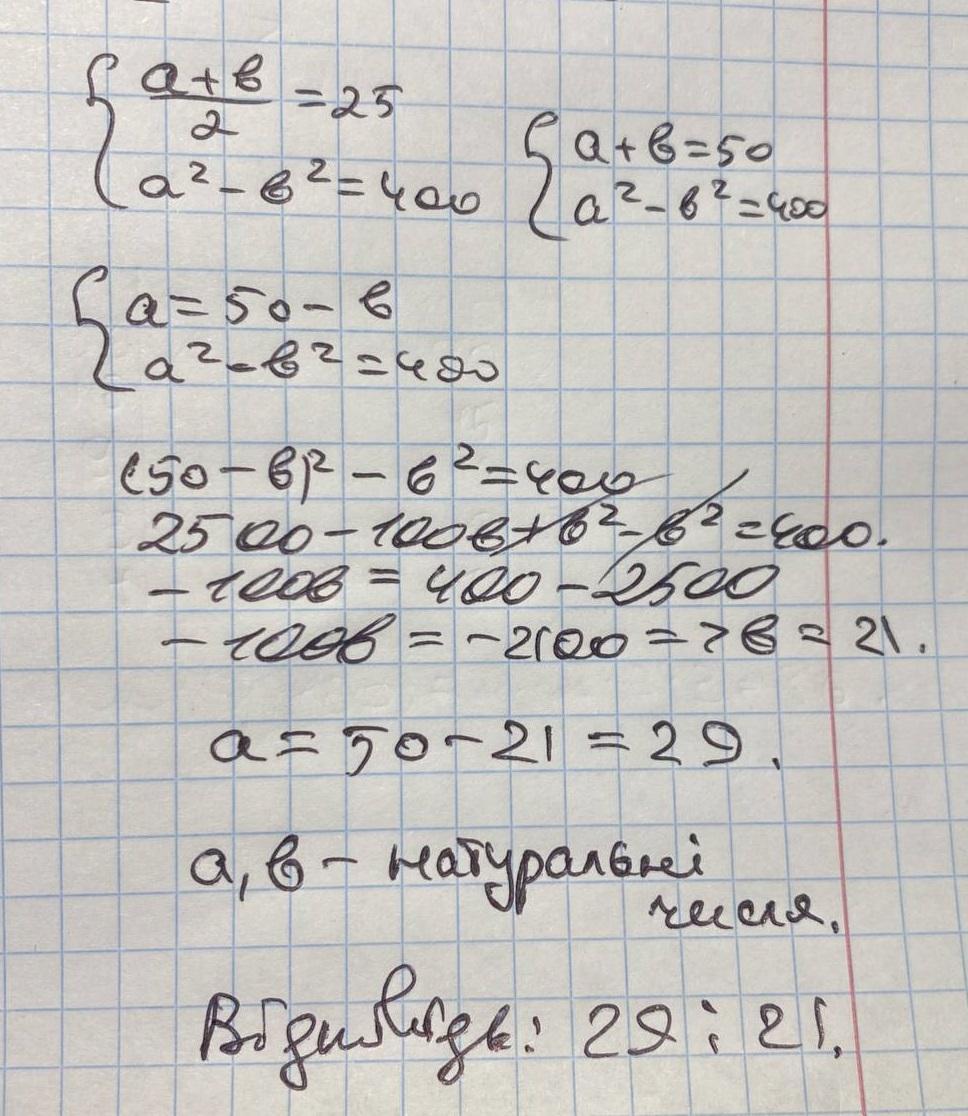 { (a+в)/2 = 25
a² - в² = 400
{ a + в = 50
a² - в² = 400
{ a = 50 - в
a² - в² = 400
(50 - в)² - в² = 400
2500 - 100в + в² - в² = 400.
- 100в = 400 - 2500
- 100в = -2100 => в = 21.
a = 50 - 21 = 29.
a, в - натуральні
числа.
Відповідь: 29 і 21.